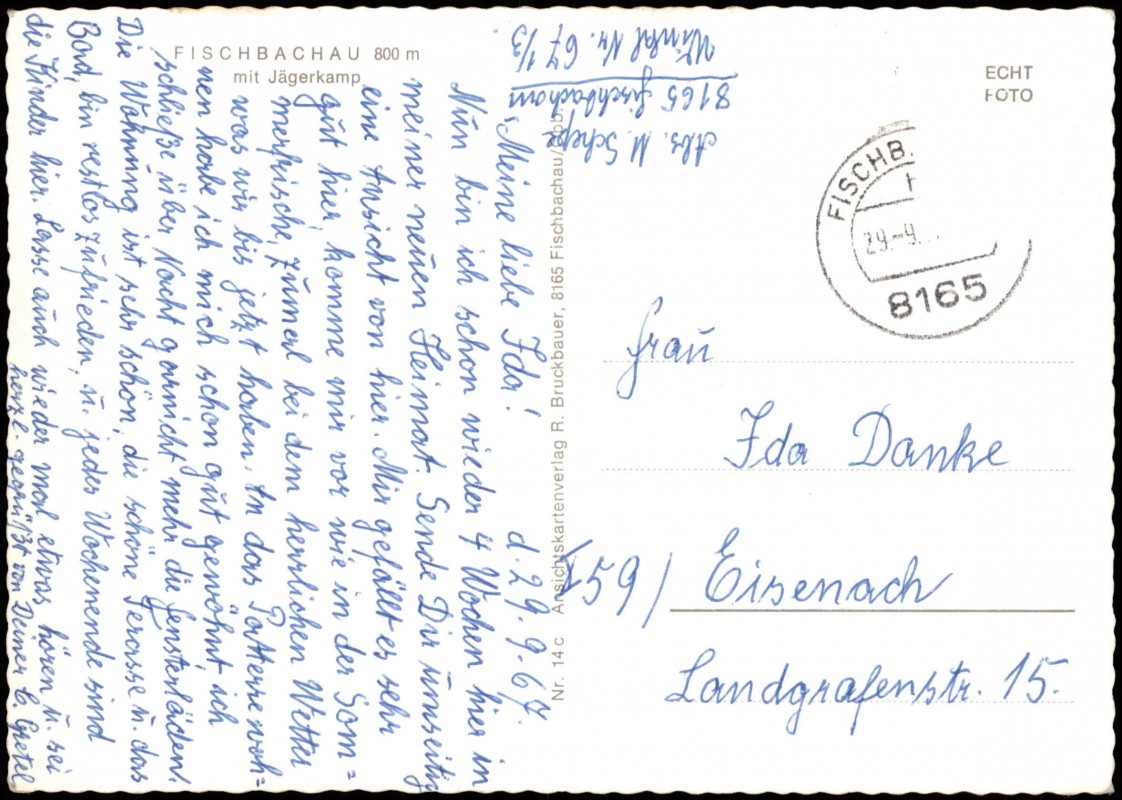 FISCHBACHAU 800 m
mit Jägerkamp
ECHT
FOTO
Abs. M. Schepe
8165 Fischbachau
Winkl Nr. 67 1/3
FISCHB
29.-9.
8165
d. 29.9.67.
Meine liebe Ida!
Nun bin ich schon wieder 4 Wochen hier in
meiner neuen Heimat. Sende Dir umseitig
eine Ansicht von hier. Mir gefällt es sehr
gut hier, komme mir vor wie in der Som=
merfrische, zumal bei dem herrlichen Wetter
was wir bis jetzt haben. An das Paterrewoh=
nen habe ich mich schon gut gewöhnt, ich
schließe über Nacht garnicht mehr die Fensterläden.
Die Wohnung ist sehr schön, die schöne Terasse u. das
Bad, bin restlos zufrieden, u. jedes Wochenende sind
die Kinder hier. Lasse auch wieder mal etwas hören u. sei
herzl. gegrüßt von Deiner Gretel
Nr. 14 c Ansichtskartenverlag R. Bruckbauer, 8165 Fischbachau/Obb.
Frau
Ida Danke
X59/ Eisenach
Landgrafenstr. 15.